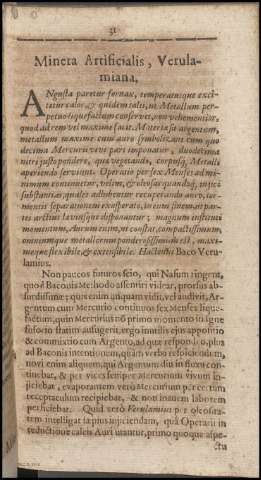 31
Minera Artificialis, Verula-
miana.
ANgusta paretur fornax, temperatusque exci-
tatur calor, & quidem talis, ut Metallum per-
petuo liquefactum conservet, non vehementior,
quod ad rem vel maxime facit. Materia sit argentum,
metallum maxime cum auro symbolizans: cum quo
decima Mercurii vivi pars imponatur, duodecima
nitri justo pondere, qua vegetando, corpusq, Metalli
aperiendo serviunt. Operatio per sex Menses ad mi-
nimum continuetur, velim, & oleosas quandoq, injici
substantias, quales adhibentur recuperando auro, tor-
mentis separationum exasperato, in eum finem ut par-
tes arctius lavinsque disponantur; magnum instituti
momentum, Aurum enim, ut constat, compactissimum,
omniumque metallorum ponderosissimum est, maxi-
meque flexibile, & extensibile. Hactenus Baco Veru-
lamius.
Non paucos futuros scio, qui Nasum ringent,
quod Baconis Methodo assentiri videar, prorsus ab-
surdissime; quis enim unquam vidit, vel audivit, Ar-
gentum cum Mercurio continuo sex Menses lique-
factum, quin Mercurius non primo momento in igne
fusorio statim aufugerit, ergo inutilis ejus appositio
& commixtio cum Argento, ad quæ respondeo, plus
ad Baconis intentionem, quam verba respiciendum,
novi enim aliquem, qui Argentum diu in fluxu con-
tinebat, & per vices semper Mercurium vivum in-
jiciebat, evaporantem vero Mercurium per certum
receptaculum recipiebat, & non inanem laborem
perficiebat. Quid vero Verulamius per oleosita-
tem intelligat sæpius injiciendam, quâ Operarii in
reductione calcis Auri utantur, primo quoque aspe-
ctu